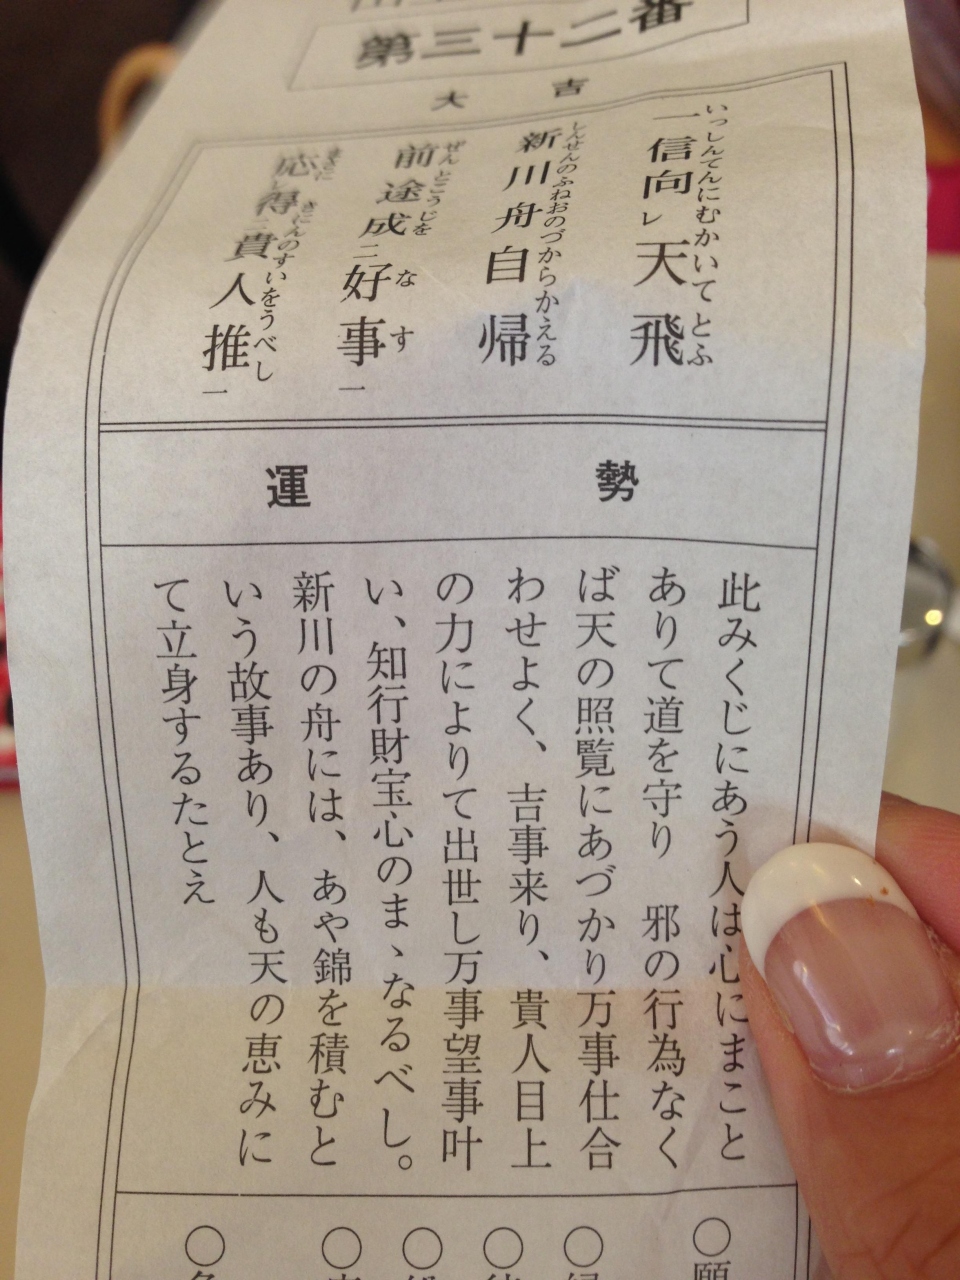 第三十二番
大吉
一信向レ天飛
いっしんてんにむかいてとふ
新川舟自帰
しんせんのふねおのづからかえる
前途成二好事一
ぜんとこうじをなす
応レ得二貴人推一
まさにきにんのすいをうべし
運勢
此みくじにあう人は心にまこと
ありて道を守り 邪の行為なく
ば天の照覧にあづかり万事仕合
わせよく、吉事来り、貴人目上
の力によりて出世し万事望事叶
い、知行財宝心のまゝなるべし。
新川の舟には、あや錦を積むと
いう故事あり、人も天の恵みに
て立身するたとえ
○願
○
○
○
○
○